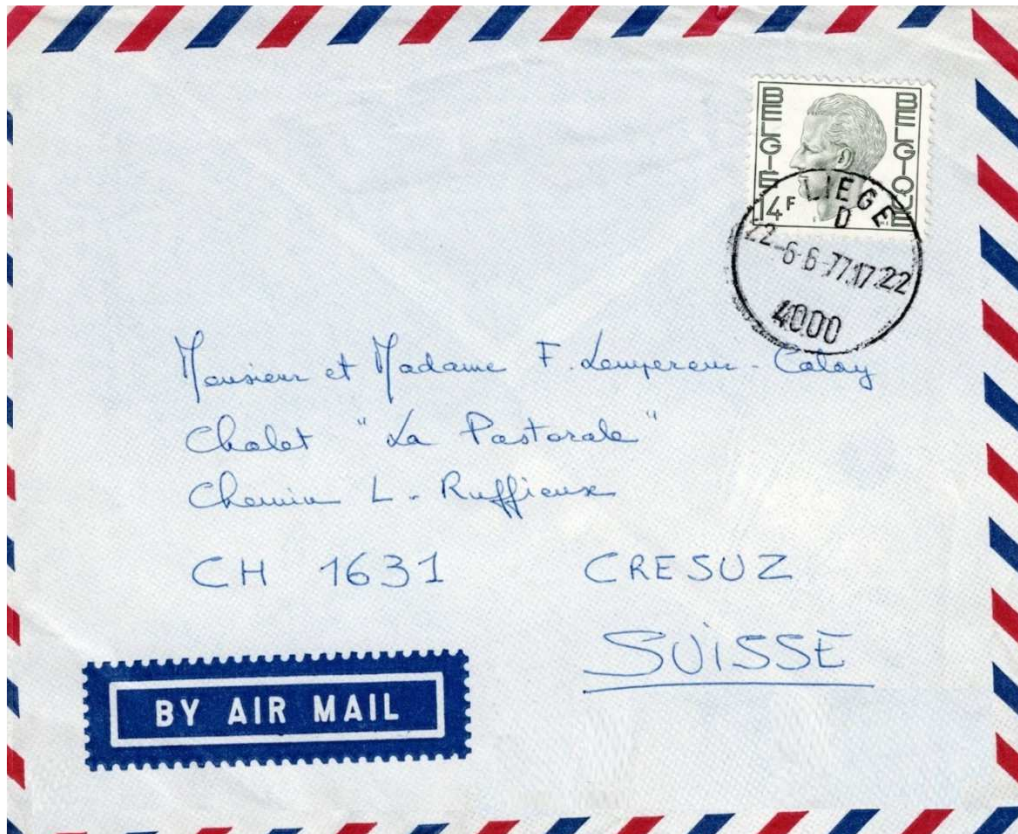 BELGIË
BELGIQUE
14F
LIEGE
D
22-6-6-77.17-22
4000
Monsieur et Madame F. Lempereur-Calay
Chalet "La Pastorale"
Chemin L. Ruffieux
CH 1631 CRESUZ
SUISSE
BY AIR MAIL